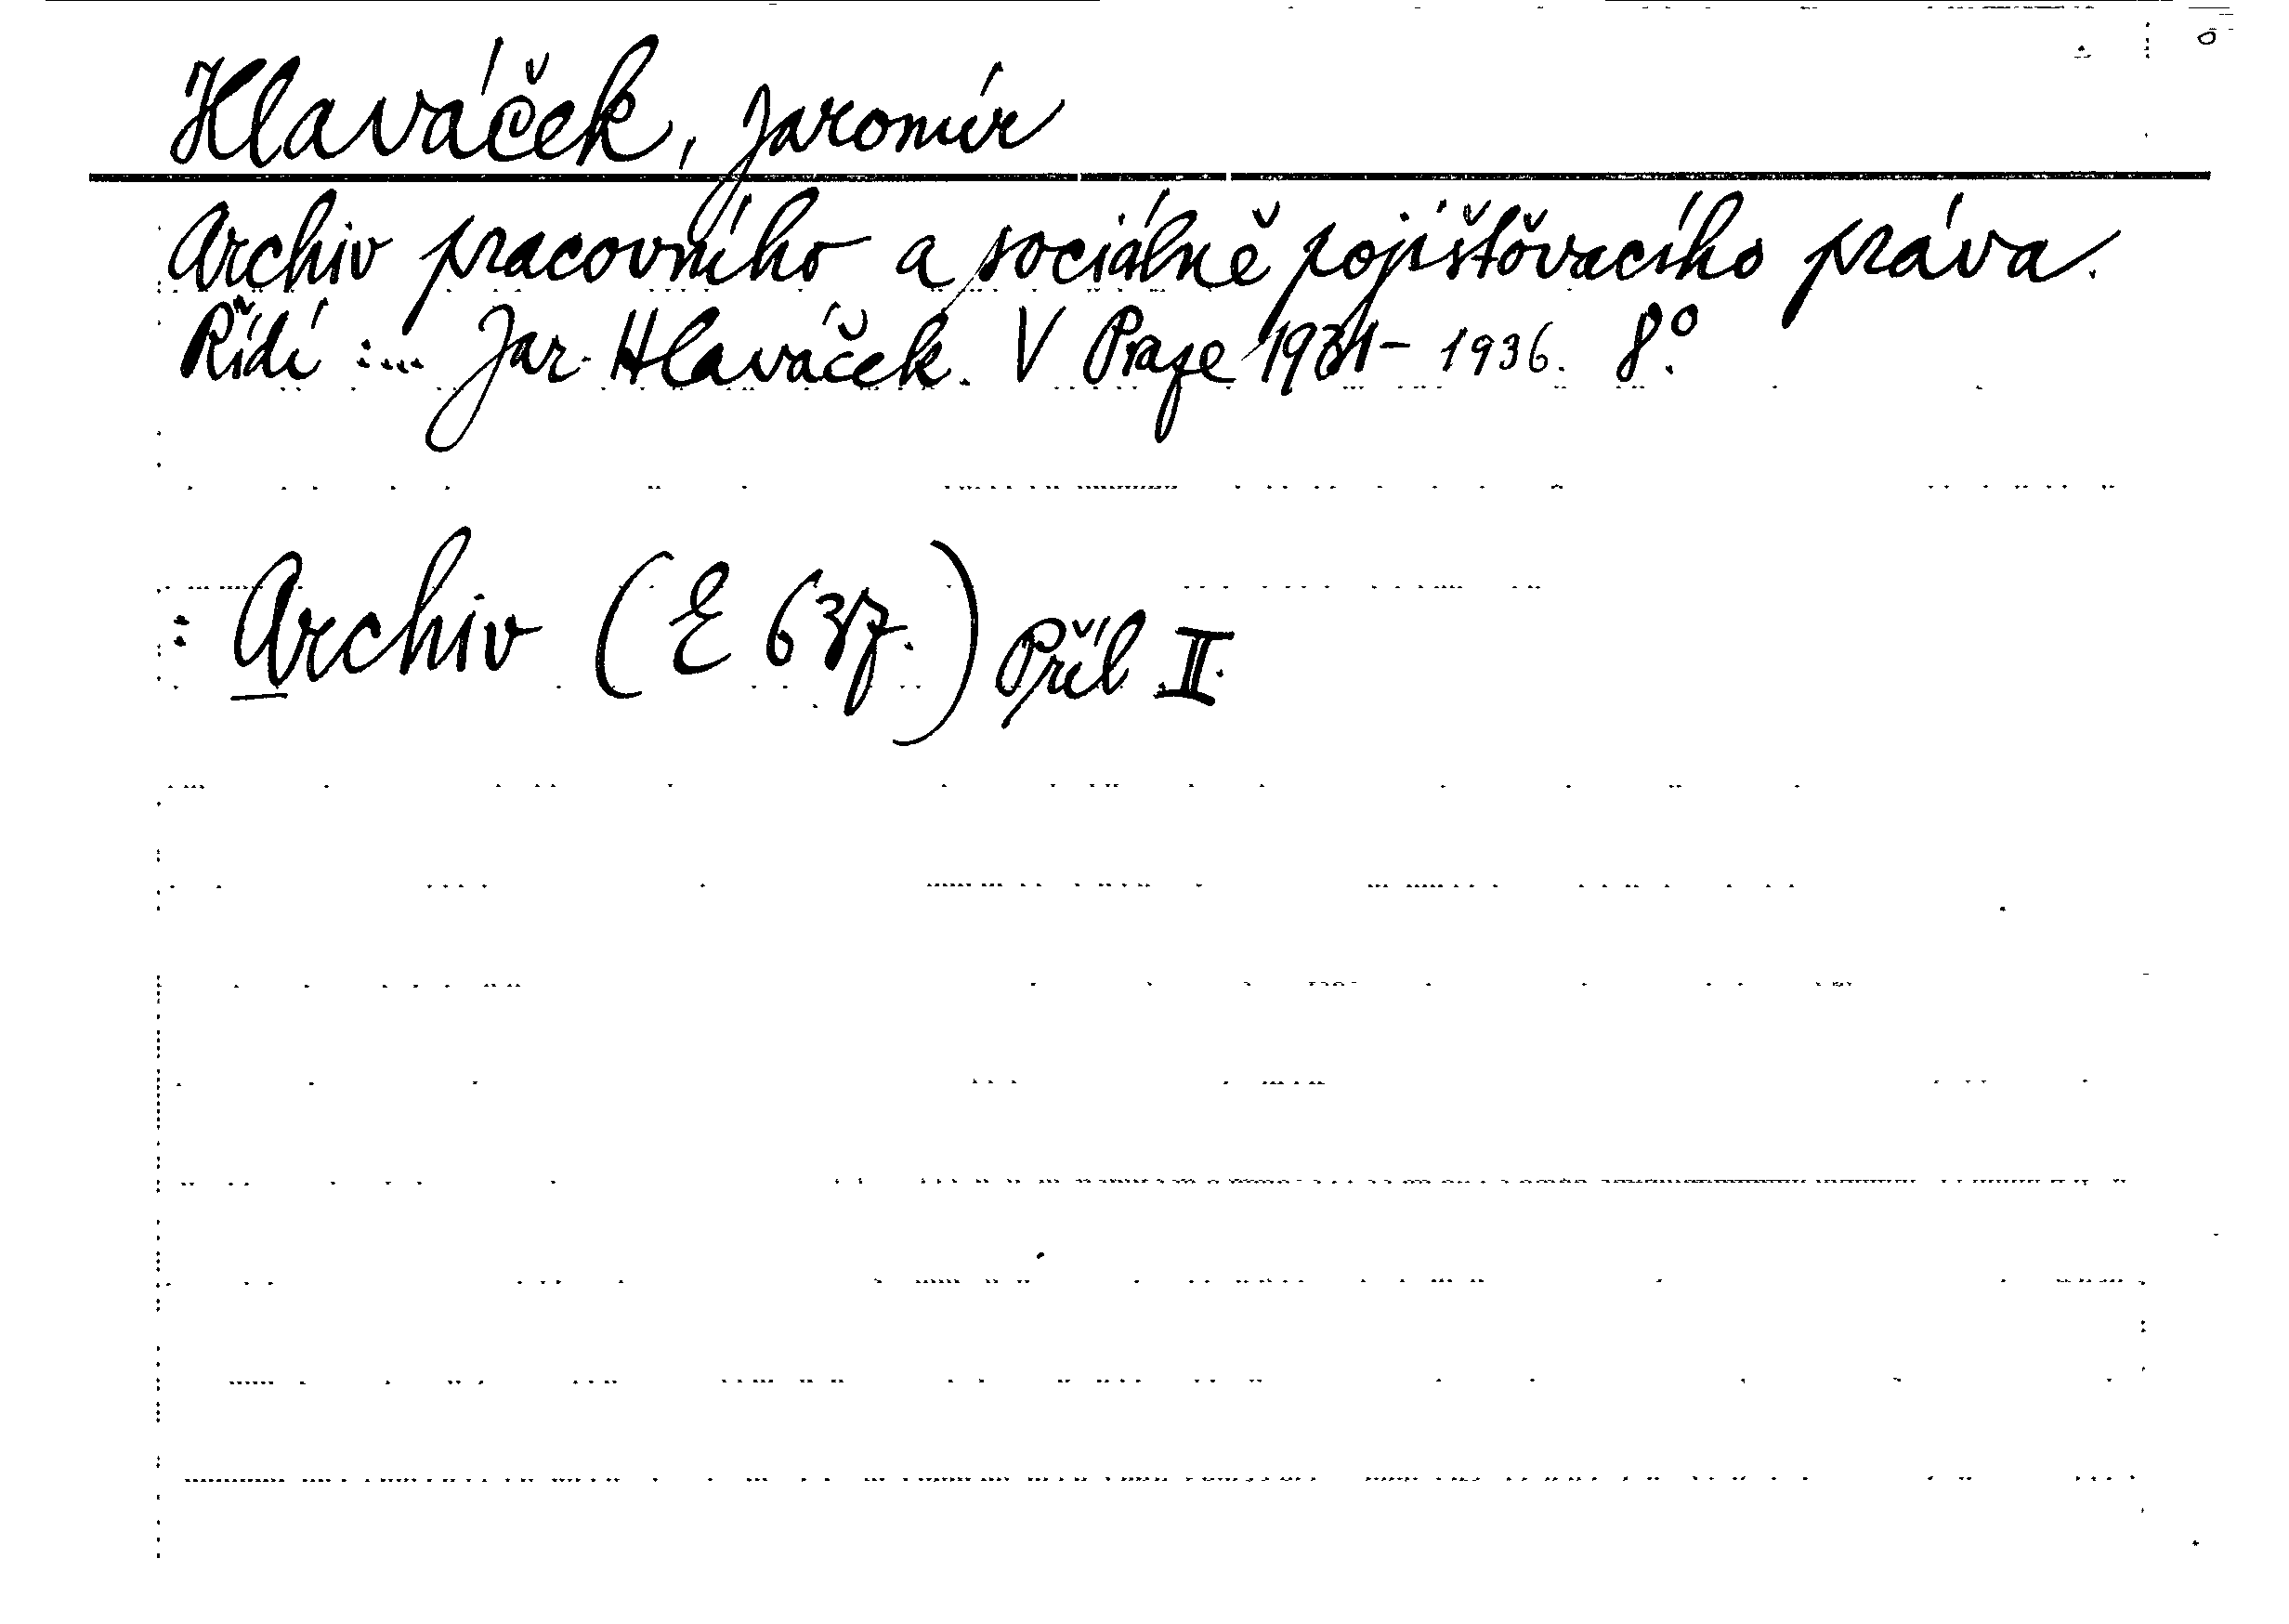 Hlaváček, Jaromír
Archiv pracovního a sociálně pojišťovacího práva.
Řídí :... Jar. Hlaváček. V Praze 1931- 1936. 8°.
: Archiv (E 637.) Příl II.